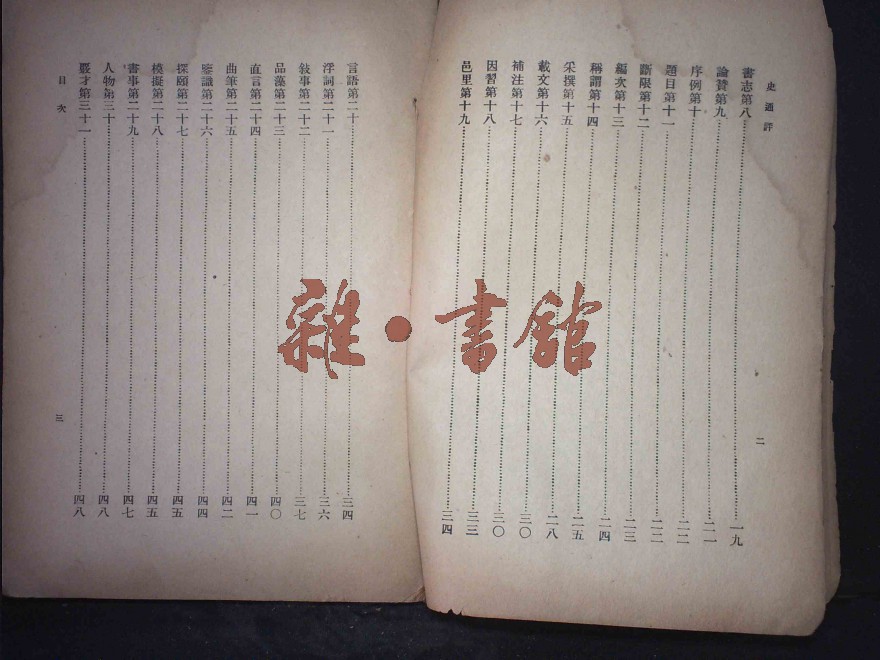 史通評
書志第八一九
論贊第九二一
序例第十二二
題目第十一二二
斷限第十二二三
編次第十三二三
稱謂第十四二四
采撰第十五二五
載文第十六二八
補注第十七三〇
因習第十八三〇
邑里第十九三三
二
言語第二十三四
浮詞第二十一三六
敍事第二十二三七
品藻第二十三四〇
直言第二十四四一
曲筆第二十五四二
鑒識第二十六四四
探賾第二十七四五
模擬第二十八四五
書事第二十九四七
人物第三十四八
覈才第三十一四八
目次
三
雜·書館